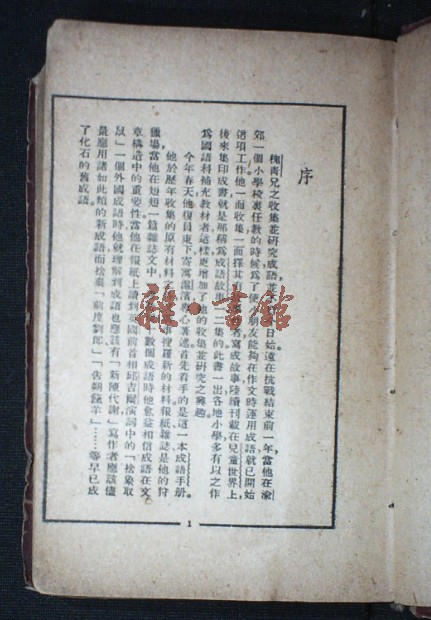 序
槐青兄之收集並研究成語並不自今日始遠在抗戰結束前一年,當他在渝
郊一個小學校裏任教的時候爲了使小朋友能夠在作文時運用成語就已開始
這項工作他一面收集一面擇其有者寫成故事陸續刊載在兒童世界上,
後來集印成書就是那稱爲成語故事一二集的此書一出各地小學多有以之作
爲國語科補充教材者這樣更增加了他的收集並研究之興趣
今年春天他復員東下寄寓滬濱專心纂述首先着手的是這一本成語手册
他於歷年收集的原有材料搜羅新的材料報紙雜誌是他的狩
獵場當他在短短一篇雜誌文中,數個成語時他愈益相信成語在文
章構造中的重要性當他在報紙上讀到英國前首相邱吉爾演詞中的「捨象取
鼠」一個外國成語時他就理解到成語也應該有「新陳代謝」寫作者應該儘
量應用諸如此類的新成語而捨棄「前度劉郎」「告朔餼羊」……等早已成
了化石的舊成語。
1
雜書館